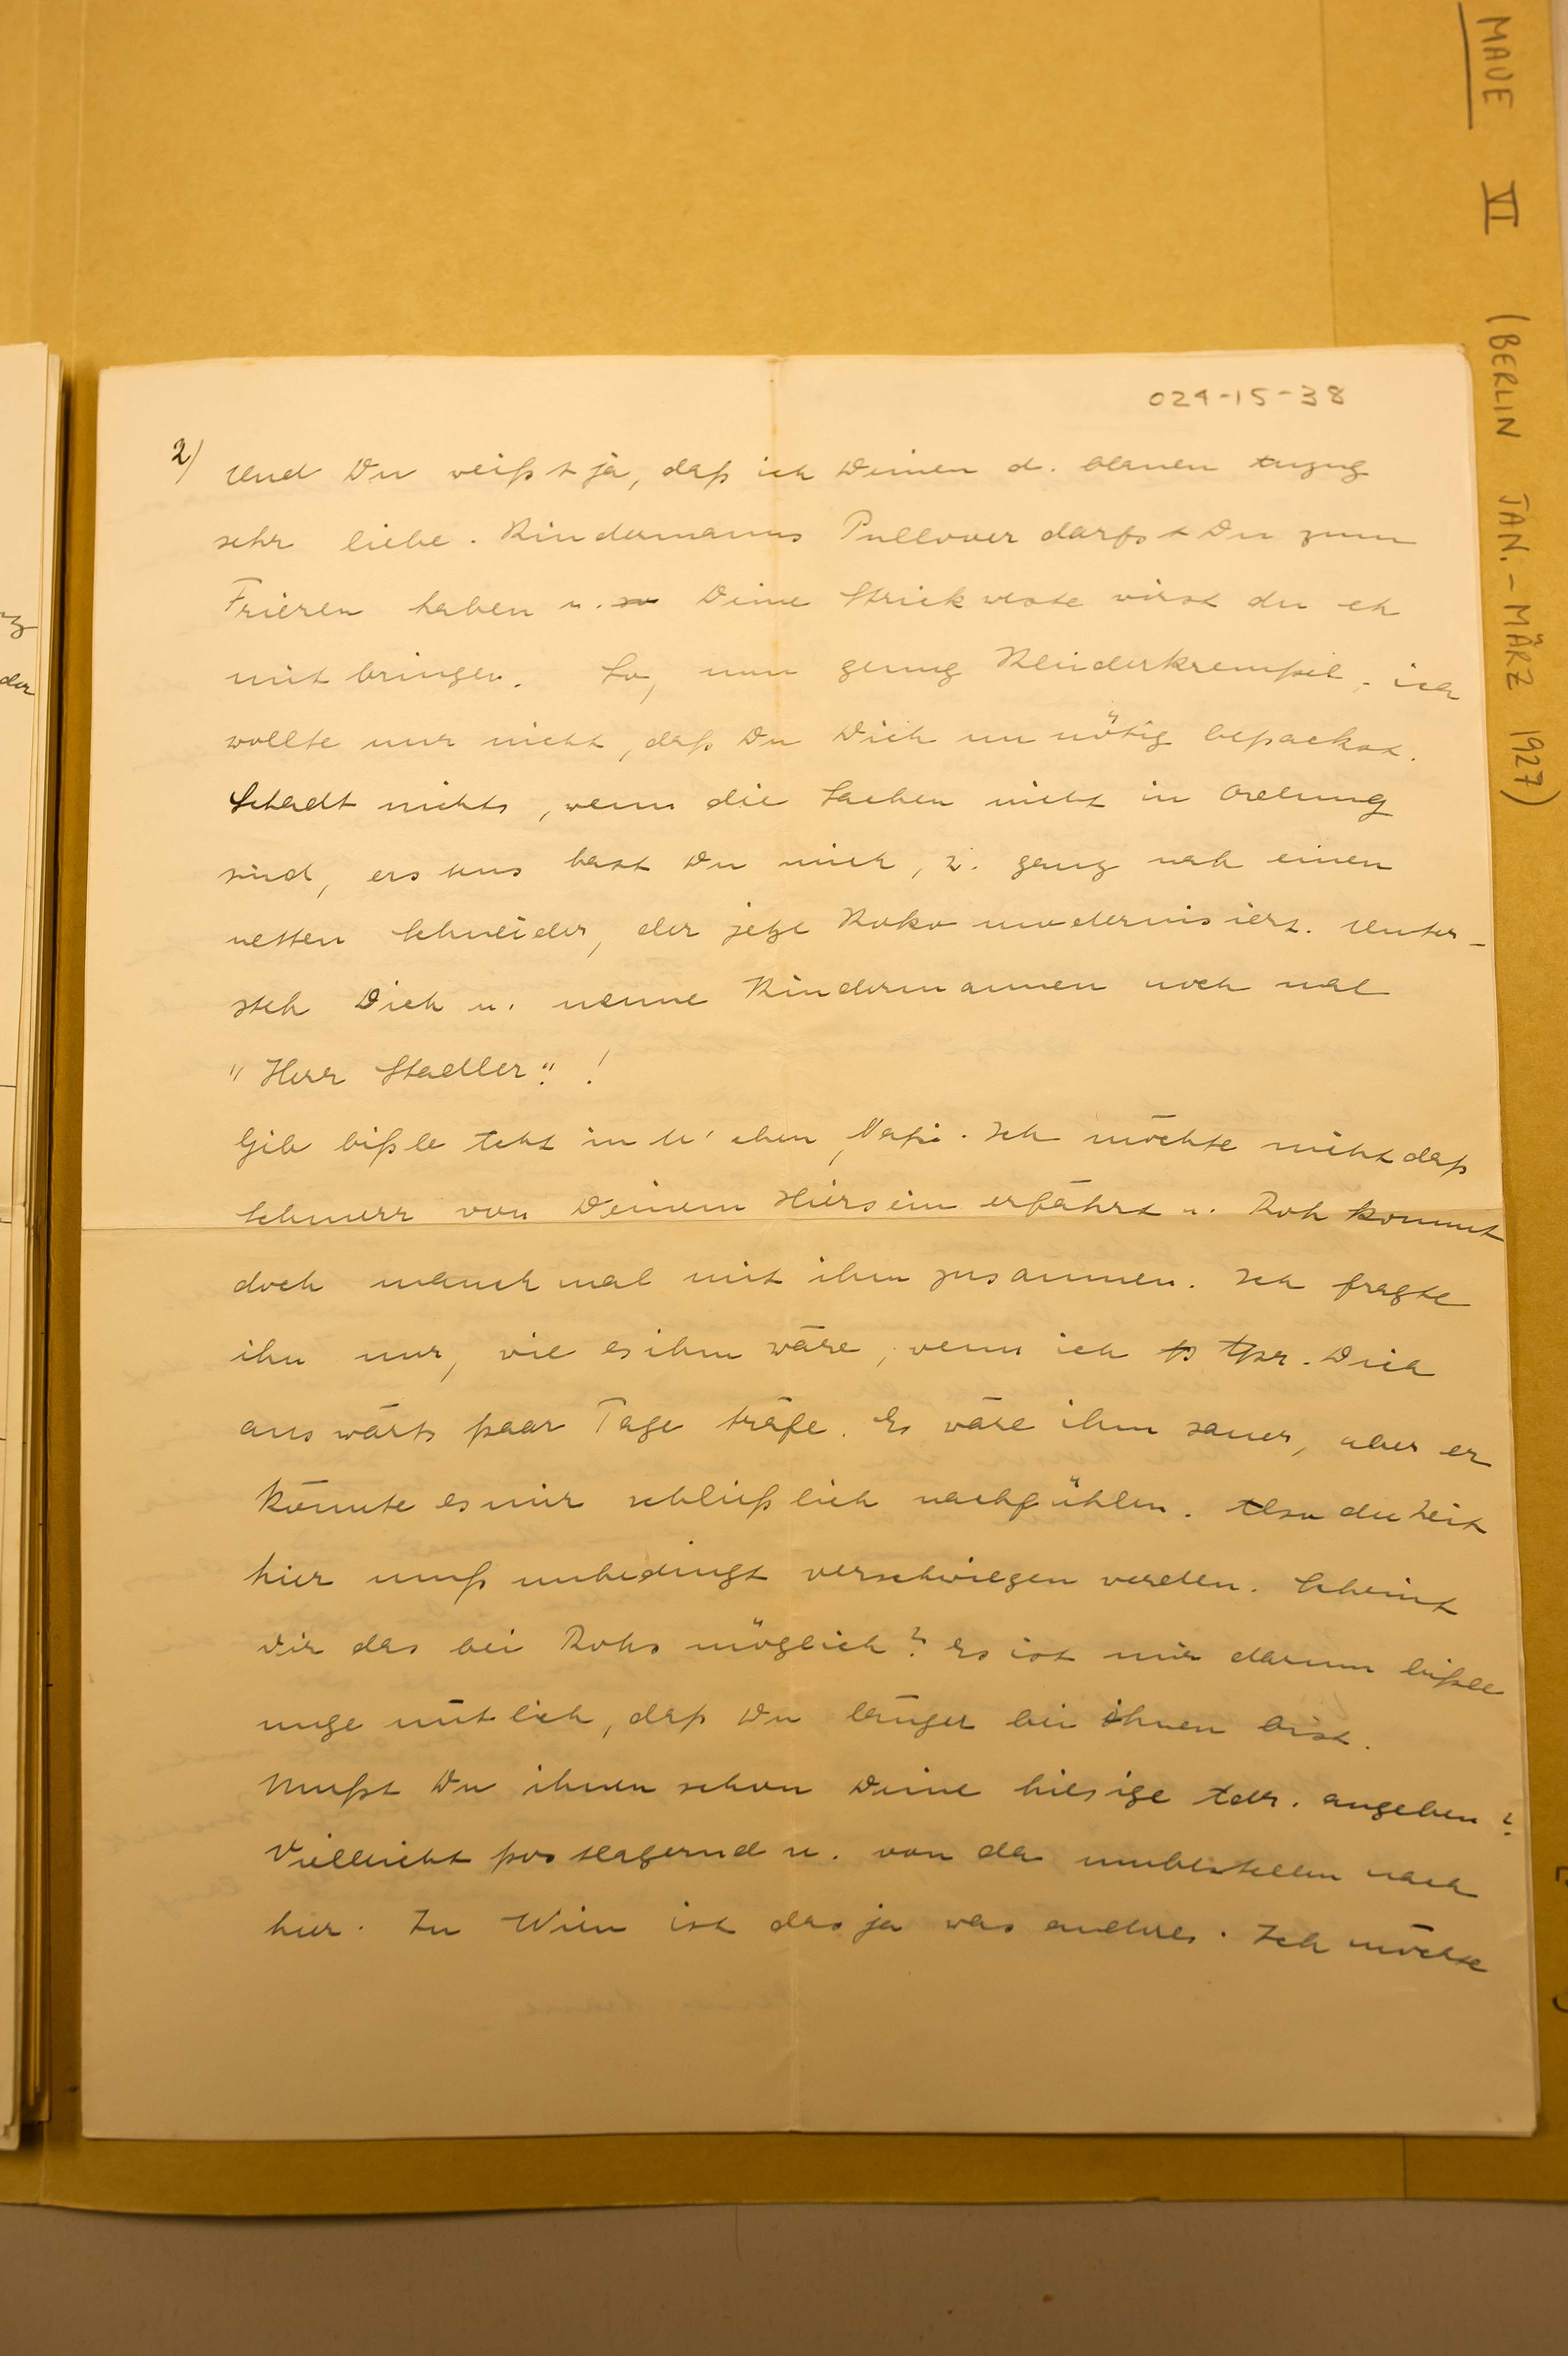 MAUE VI (BERLIN JAN.-MÄRZ 1927)
024-15-38
2) Und Du weißt ja, daß ich Deinen d. blauen Anzug
sehr liebe. Kindermanns Pullover darfst Du zum
Frieren haben u. Deine Strickweste wirst du eh
mitbringen. So, nun genug Kleiderkrempel, ich
wollte nur nicht, daß Du Dich unnötig bepackst.
Schadt nichts, wenn die Sachen nicht in Ordnung
sind, erstens hast Du mich, 2. ganz nah einen
netten Schneider, der jetzt Roko modernisiert. Unter-
steh Dich u. nenne Kindermannen noch mal
"Herr Stadler"!
Gib bißle Acht in M'chen, . Ich möchte nicht daß
Schnurr von Deinem Hiersein erfährt u. Roh kommt
doch manchmal mit ihm zusammen. Ich fragte
ihn nur, wie es ihm wäre, wenn ich Apr. Dich
auswärts paar Tage träfe. Es wäre ihm sauer, aber er
könnte es mir schließlich nachfühlen. Also die Zeit
hier muß unbedingt verschwiegen werden. Scheint
Dir das bei Rohs möglich? Es ist mir darum bißle
ungemütlich, daß Du länger bei ihnen bist.
Mußt Du ihnen schon Deine hiesige Adr. angeben?
Vielleicht postlagernd u. von da umbestellen nach
hier. In Wien ist das ja was anderes. Ich möchte